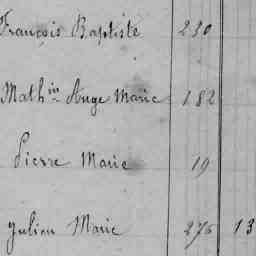 François Baptiste 230
Math^in Ange Marie 182
Pierre Marie 19
Julien Marie 276 13